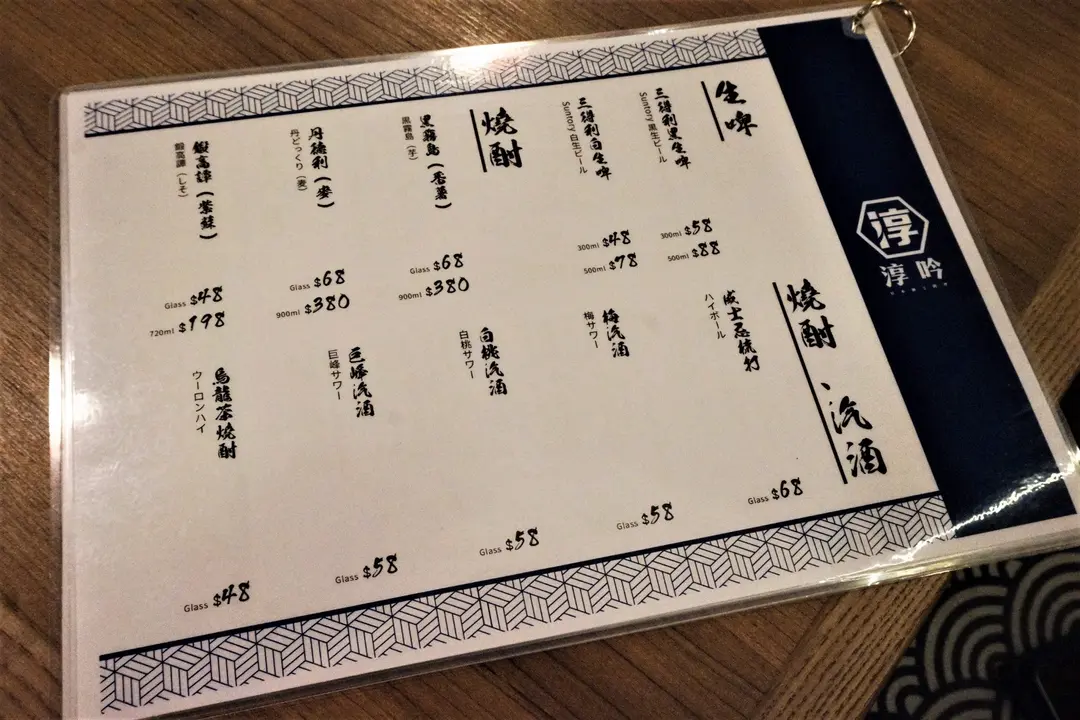 淳
淳吟
生啤
三得利黑生啤
Suntory 黒生ビール
300ml $58
500ml $88
三得利白生啤
Suntory 白生ビール
300ml $48
500ml $78
焼酎
黒霧島(番薯)
黒霧島(芋)
Glass $68
900ml $380
丹德利(麥)
丹どっくり(麦)
Glass $68
900ml $380
鍛高譚(紫蘇)
鍛高譚(しそ)
Glass $48
720ml $198
焼酎、汽酒
威士忌梳打
ハイボール
Glass $68
梅汽酒
梅サワー
Glass $58
白桃汽酒
白桃サワー
Glass $58
巨峰汽酒
巨峰サワー
Glass $58
烏龍茶焼酎
ウーロンハイ
Glass $48